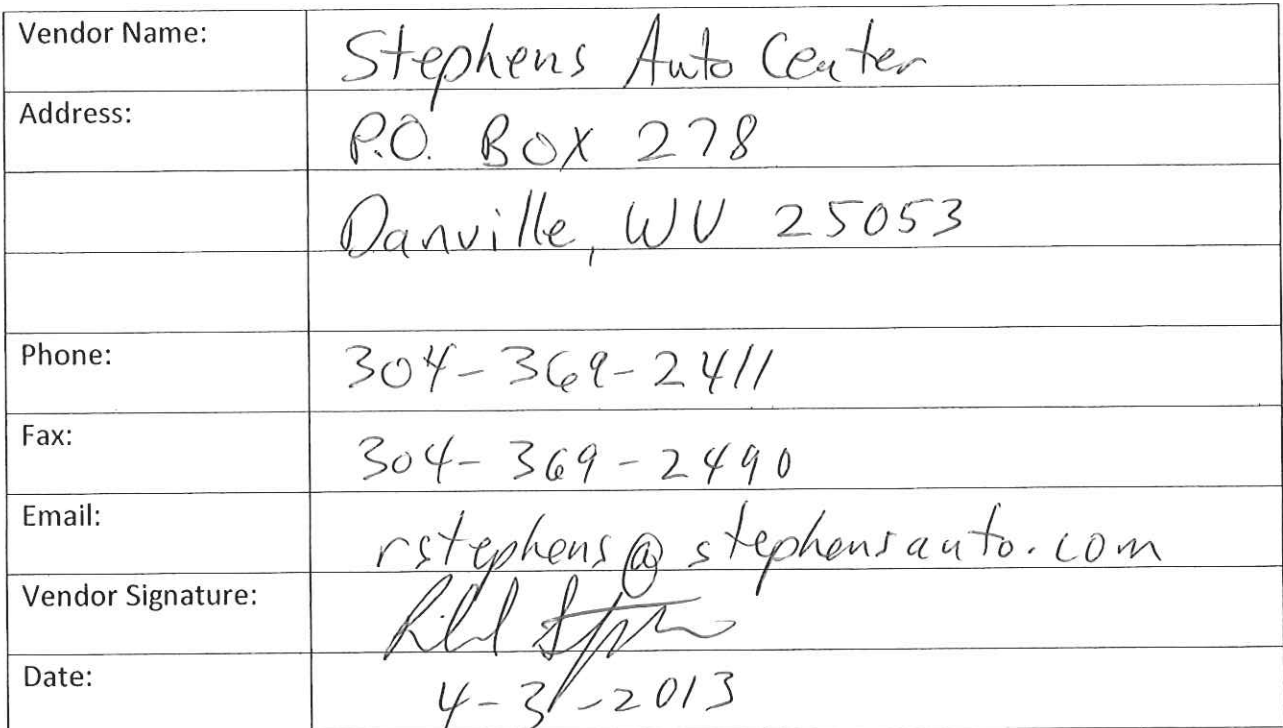 Vendor Name: Stephens Auto Center
Address: P.O. Box 278
Danville, WV 25053
Phone: 304-369-2411
Fax: 304-369-2490
Email: rstephens@stephensauto.com
Vendor Signature:
Date: 4-3-2013